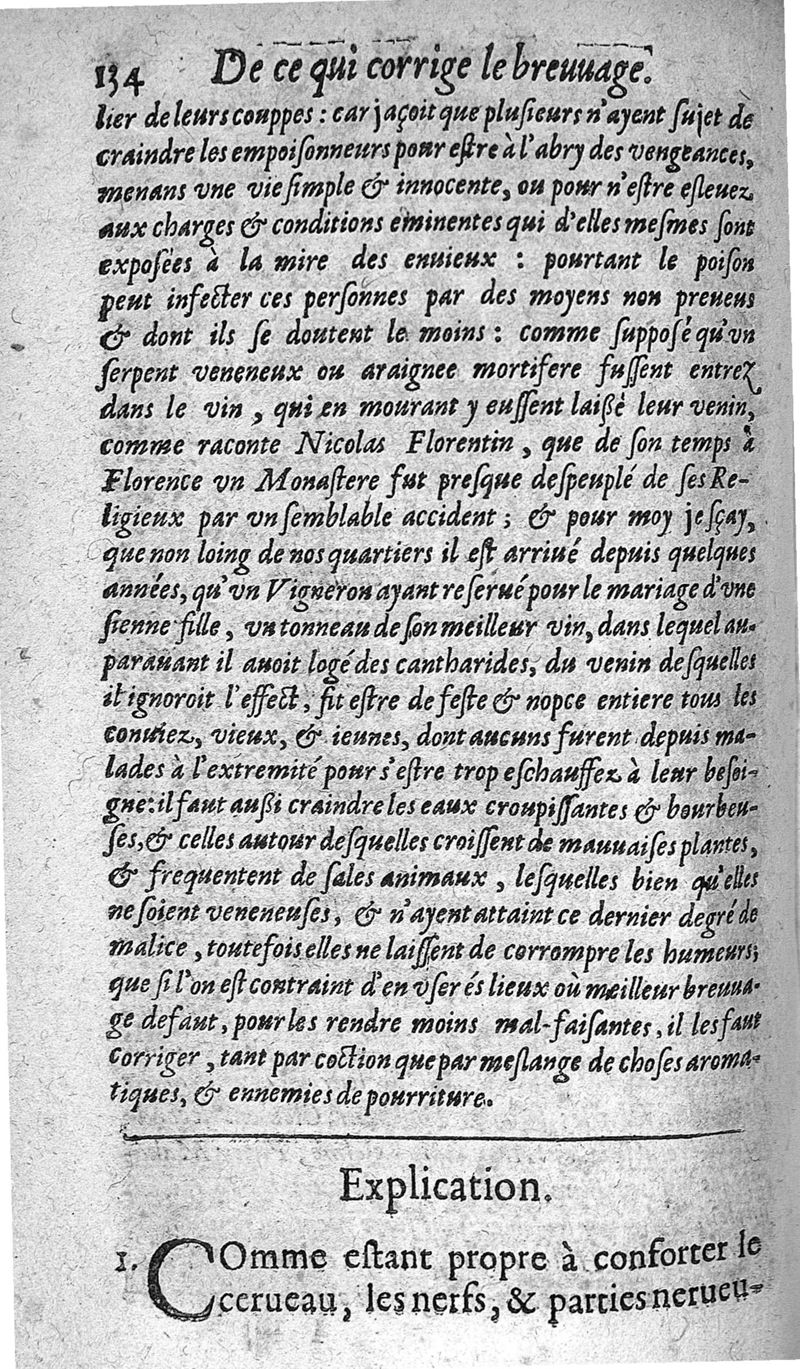 134 De ce qui corrige le breuuage.
lier de leurs couppes : car jaçoit que plusieurs n'ayent sujet de
craindre les empoisonneurs pour estre à l'abry des vengeances,
menans vne vie simple & innocente, ou pour n'estre esleuez
aux charges & conditions eminentes qui d'elles mesmes sont
exposées à la mire des enuieux : pourtant le poison
peut infecter ces personnes par des moyens non preueus
& dont ils se doutent le moins : comme supposé qu'vn
serpent veneneux ou araignee mortifere fussent entrez
dans le vin, qui en mourant y eussent laißé leur venin,
comme raconte Nicolas Florentin, que de son temps à
Florence vn Monastere fut presque despeuplé de ses Re-
ligieux par vn semblable accident ; & pour moy je sçay,
que non loing de nos quartiers il est arriué depuis quelques
années, qu'vn Vigneron ayant reserué pour le mariage d'vne
sienne fille, vn tonneau de son meilleur vin, dans lequel au-
parauant il auoit logé des cantharides, du venin desquelles
il ignoroit l'effect, fit estre de feste & nopce entiere tous les
conuiez, vieux, & ieunes, dont aucuns furent depuis ma-
lades à l'extremité pour s'estre trop eschauffez à leur besoi-
gne: il faut außi craindre les eaux croupissantes & bourbeu-
ses, & celles autour desquelles croissent de mauuaises plantes,
& frequentent de sales animaux, lesquelles bien qu'elles
ne soient veneneuses, & n'ayent attaint ce dernier degré de
malice, toutefois elles ne laissent de corrompre les humeurs;
que si l'on est contraint d'en vser és lieux où meilleur breuua-
ge defaut, pour les rendre moins mal-faisantes, il les faut
corriger, tant par coction que par meslange de choses aroma-
tiques, & ennemies de pourriture.
Explication.
1. COmme estant propre à conforter le
cerueau, les nerfs, & parties nerueu-